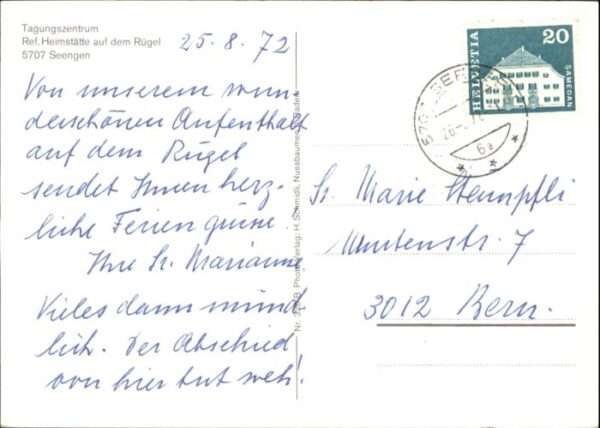 Tagungszentrum
Ref. Heimstätte auf dem Rügel
5707 Seengen
25. 8. 72
Von unserem wun
derschönen Aufenthalt
auf dem Rügel
sendet Ihnen herz-
liche Feriengrüsse.
Ihre Sr. Marianne
Vieles dann münd-
lich. Der Abschied
von hier tut weh!
Photo Verlag: H. Schmidli, Nussbaumen
HELVETIA
20
SAMEDAN
6a
Sr. Marie Stempfli
3012 Bern.